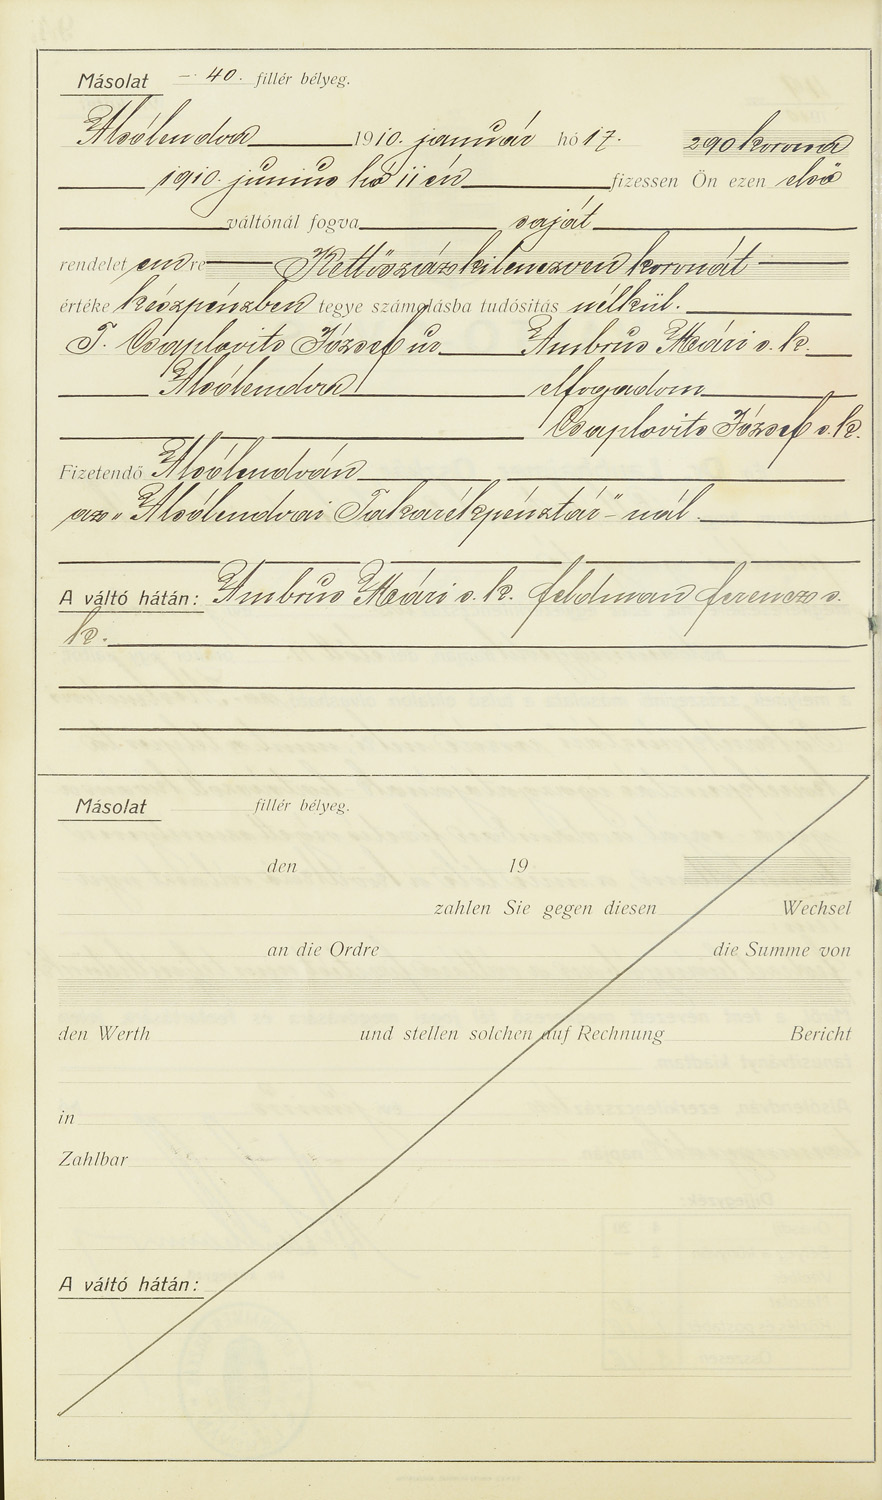 Másolat — 40. fillér bélyeg.
Alsólendva 1910. január hó 17. 290 korona
1910. junius hó 11 én fizessen Ön ezen első
váltónál fogva saját
rendelet emre Kettőszázkilenczven koronát
értéke készpénzben tegye számolásba tudósítás nélkül.
T. Csaplovits József úr Ambrus Mári s. k.
Alsólendva elfogadom
Csaplovits József s. k.
Fizetendő Alsólendván
az „Alsólendvai Takarékpénztár"-nál.
A váltó hátán: Ambrus Mári s. k. Feldman Ferencz s.
k.
Másolat fillér bélyeg.
den 19
zahlen Sie gegen diesen Wechsel
an die Ordre die Summe von
den Werth und stellen solchen auf Rechnung Bericht
in
Zahlbar
A váltó hátán: